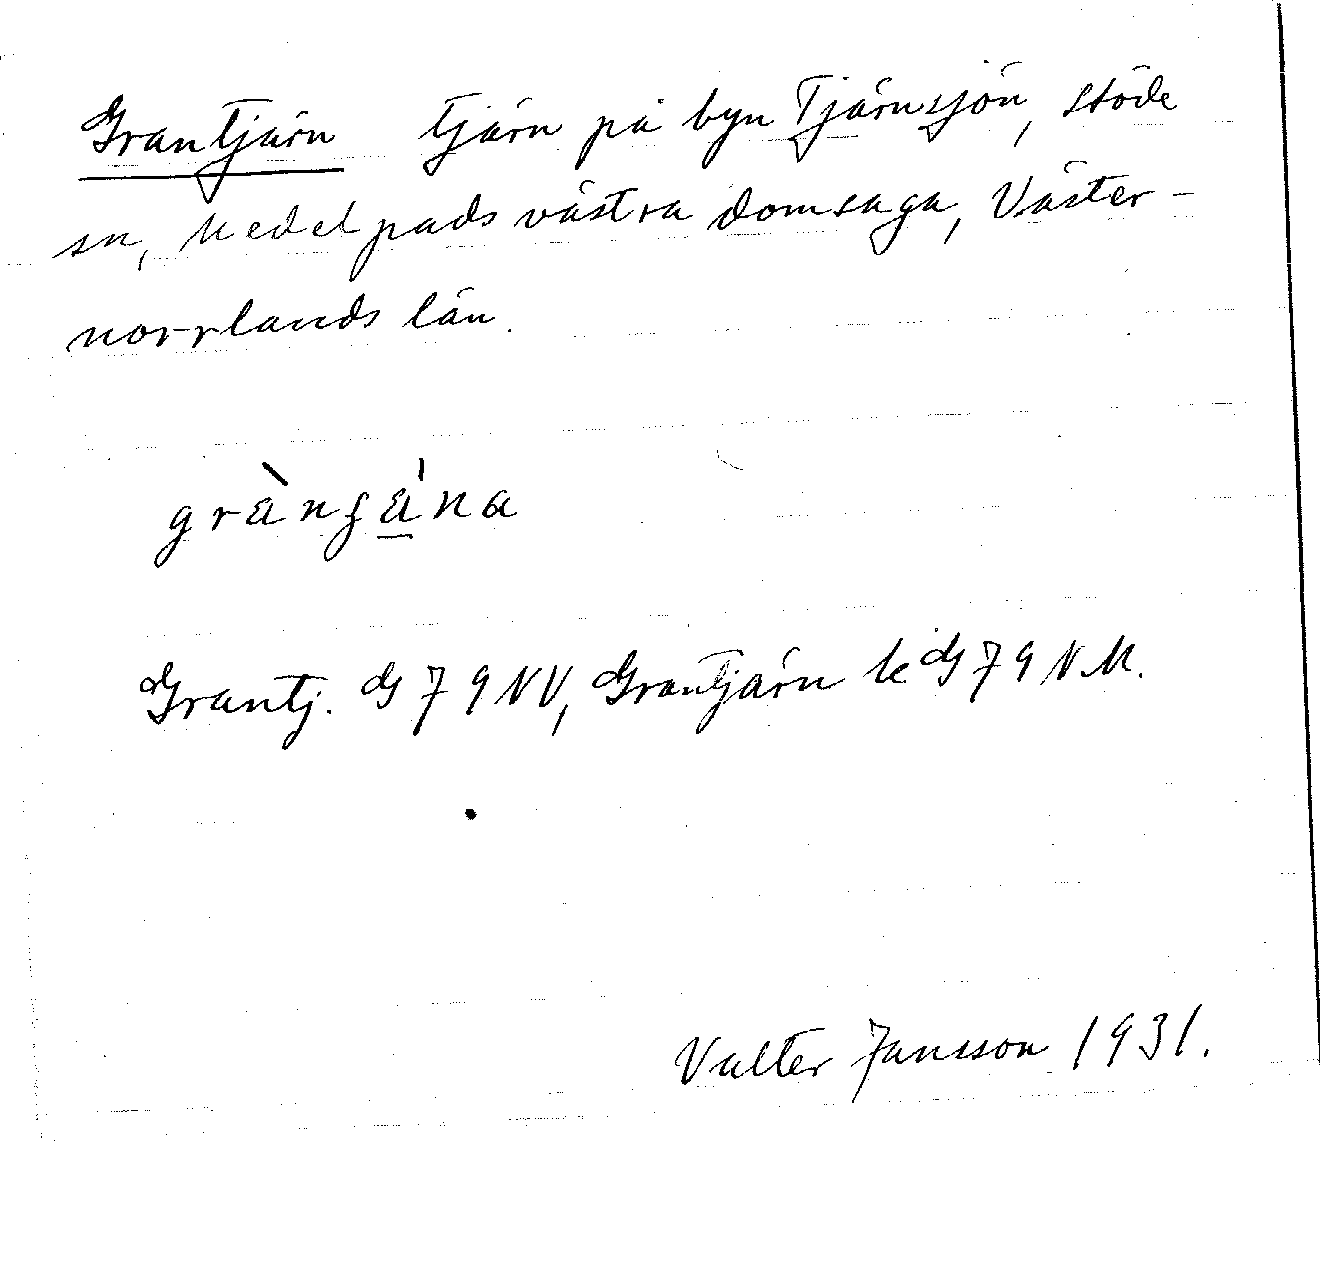 Grantjärn tjärn på byn Tjärnsjön, Stöde
sn, Medelpads västra domsaga, Väster-
norrlands län.
Grantj. G 79 NV, Grantjärn k G 79 N.M.
Valter Jansson 1931.